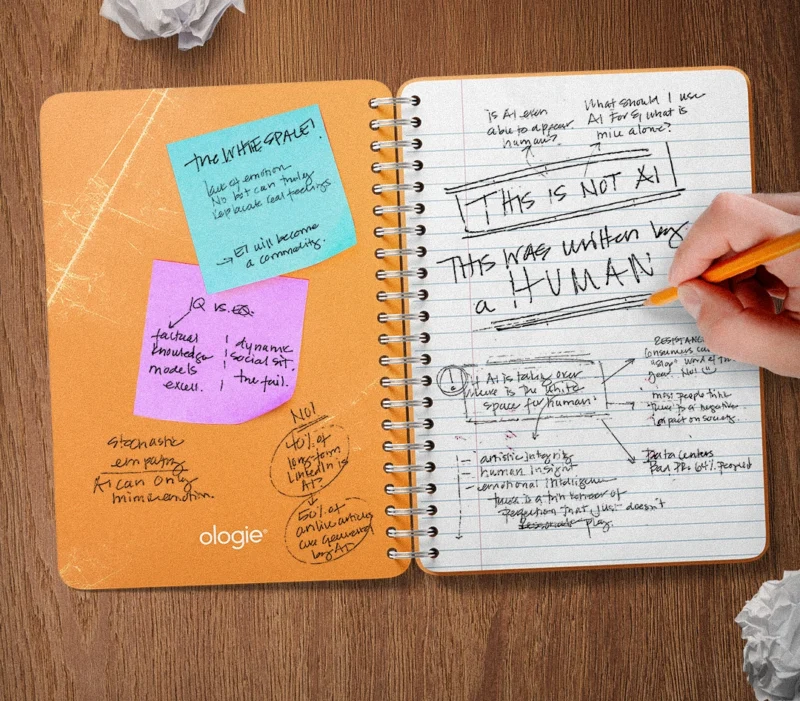 the WHITE SPACE!
lack of emotion
No bot can truly
replacate real feelings
→ EI will become
a commodity.
IQ vs. EQ.
factual
knowledge
models
excell.
dynamic
social sit.
the fail.
Stochastic
empathy
AI can only
mimic emotion.
NO!
40% of
long-form
LinkedIn is
AI?
50% of
online articles
are generated
by AI
ologie
is AI even
able to appear
human?
What should I use
AI for & what is
mine alone?
THIS IS NOT AI
THIS was written by
a HUMAN
! AI is taking over
where is the white
space for human?
RESISTANCE
Consumers
"slop" word of the
year No!!
most people think
there is a negative
impact on society.
Data Centers
Bad PR: 64% people
- artistic integrity
- human insight
- emotional intelligence
there is a
perfection that just doesn't
play.